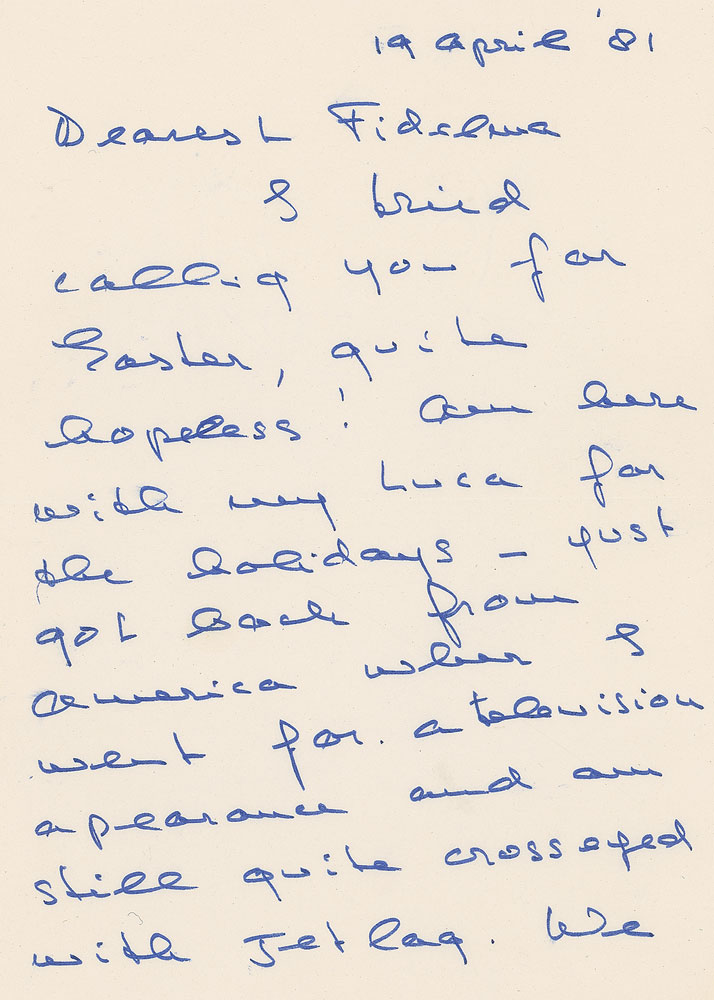 19 April '81
Dearest Fidelma
I tried
calling you for
Easter, quite
hopeless! Am here
with my Luca for
the holidays – just
got back from
America where I
went for a television
apearance and am
still quite crosseyed
with Jet lag. We